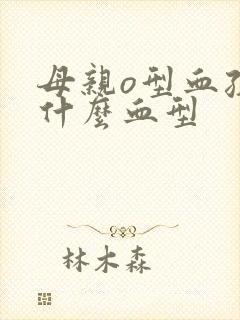 母親o型血孩
什麼血型
林木森